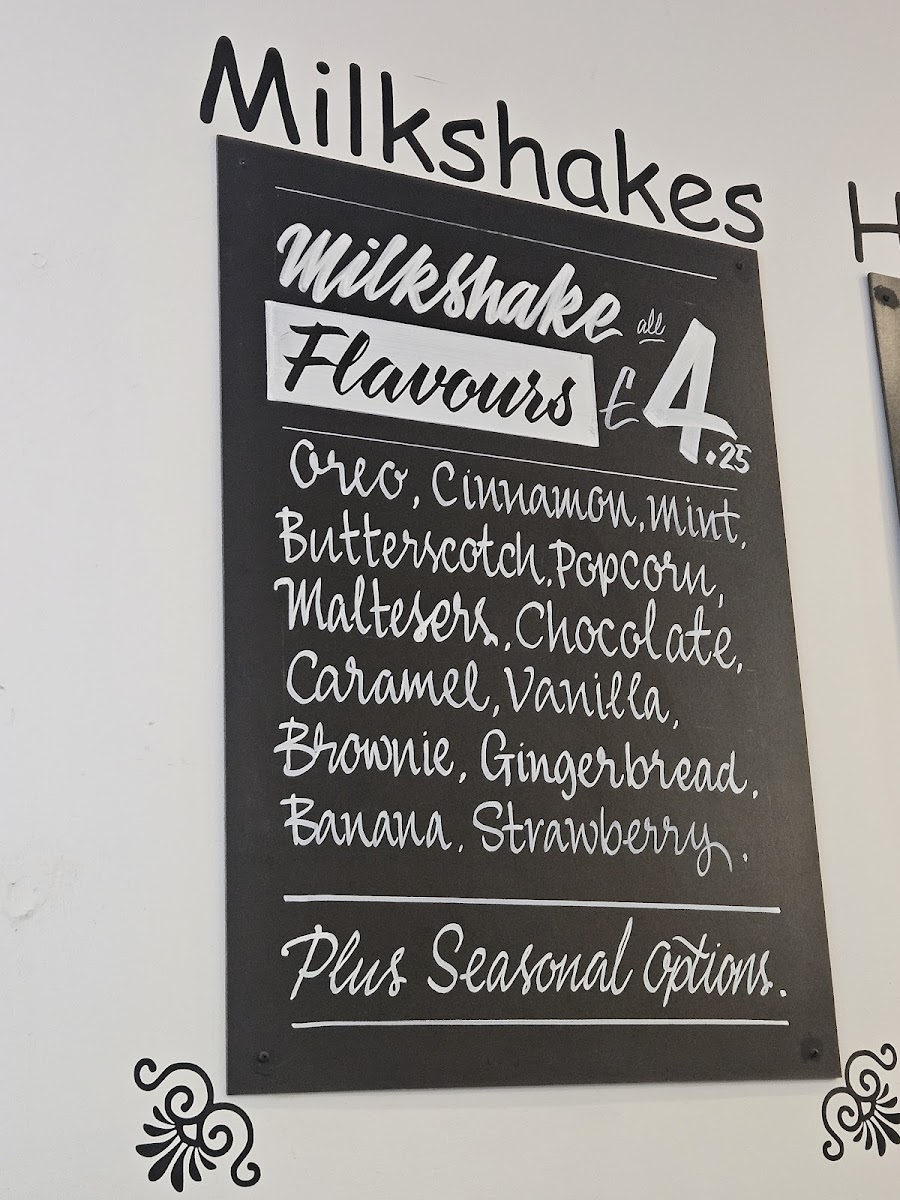 Milkshakes
H
Milkshake
Flavours
all £4.25
Oreo, Cinnamon, Mint,
Butterscotch, Popcorn,
Maltesers, Chocolate,
Caramel, Vanilla,
Brownie, Gingerbread,
Banana, Strawberry.
Plus Seasonal options.